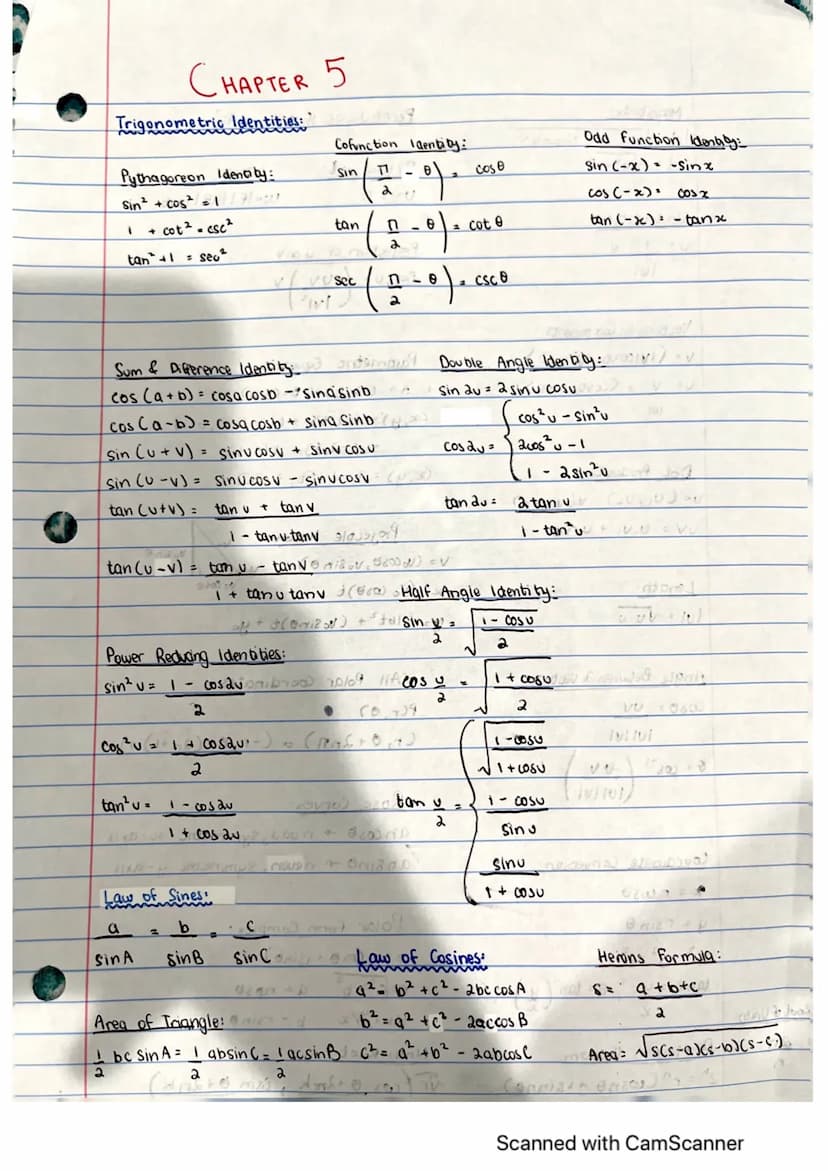 CHAPTER 5
Trigonometric Identities:
Pythagorean Identity:
sin² + cos² = 1
1 + cot² = csc²
tan² + 1 = sec²
Cofunction Identity:
sin (π/2 - θ) = cosθ
tan (π/2 - θ) = cot θ
sec (π/2 - θ) = cscθ
Odd Function Identity:
sin(-x) = -sinx
cos(-x) = cosx
tan(-x) = -tanx
Sum & Difference Identity:
cos(a+b) = cosacosb - sinasinb
cos(a-b) = cosacosb + sinasinb
sin(u+v) = sinucosv + sinvcosu
sin(u-v) = sinucosv - sinucosv
tan(u+v) = tan u + tan v / 1 - tanutanv
tan(u-v) = tan u - tanv / 1 + tanutanv
Double Angle Identity:
sin 2u = 2sinu cosu
cos2u = { cos²u - sin²u
2cos²u - 1
1 - 2sin²u
tan 2u = 2 tan u / 1 - tan²u
Half Angle Identity:
sin u/2 = √(1 - cosu / 2)
cos u/2 = √(1 + cosu / 2)
tan u/2 = { √(1 - cosu / 1 + cosu)
1 - cosu / sinu
sinu / 1 + cosu
Power Reducing Identities:
sin²u = 1 - cos2u / 2
cos²u = 1 + cos2u / 2
tan²u = 1 - cos2u / 1 + cos2u
Law of Sines:
a / sinA = b / sinB = c / sinC
Area of Triangle:
1/2 bc sinA = 1/2 absinC = 1/2 acsinB
Law of Cosines:
a² = b² + c² - 2bc cosA
b² = a² + c² - 2accosB
c² = a² + b² - 2abcosC
Herons Formula:
s = a+b+c / 2
Area = √s(s-a)(s-b)(s-c)
Scanned with CamScanner